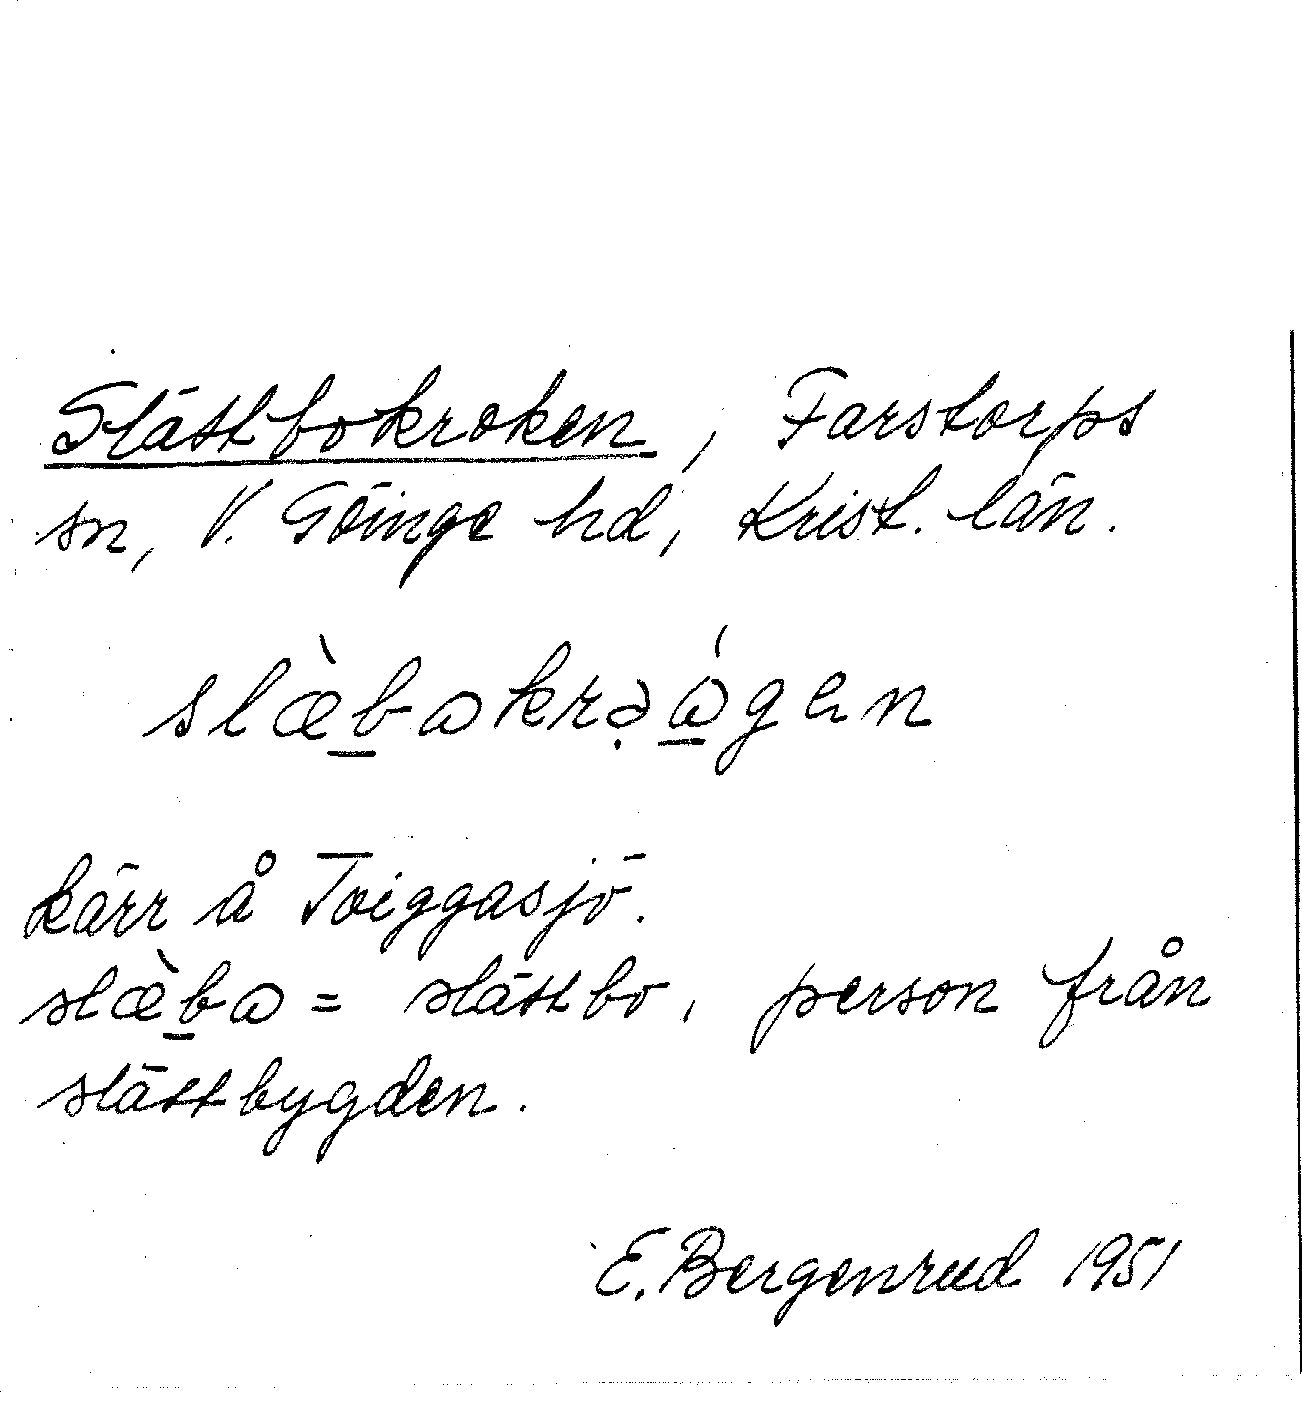 Slättbokroken, Farstorps
sn, V. Göinge hd, Krist. län.
slæ̀b̲ɷkrə̣ɷ̲́gen
kärr å Tviggasjö.
slæ̀b̲ɷ = slättbo, person från
slättbygden.
E. Bergenrud 1951